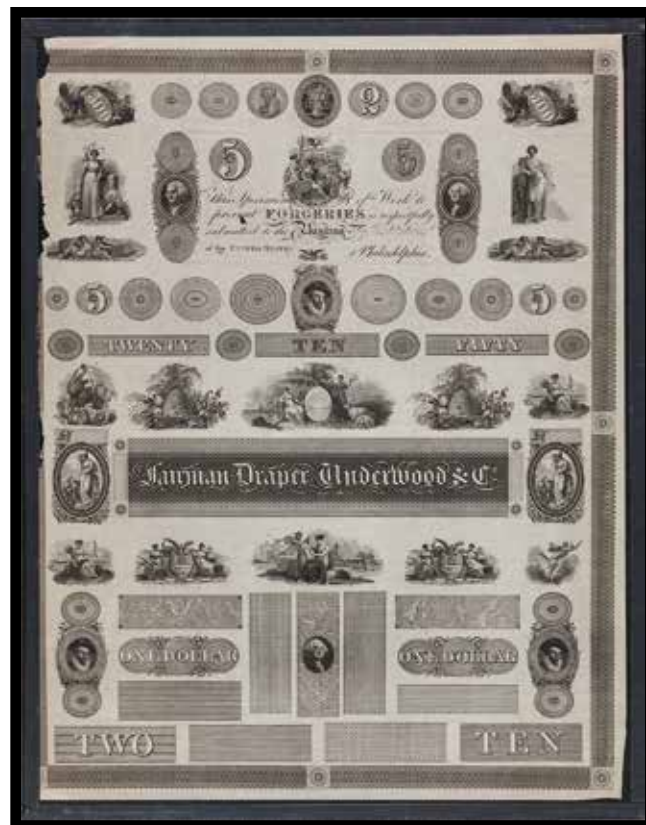 5 5
this Specimen of Work to
prevent FORGERIES is respectfully
submitted to the
of the UNITED STATES Philadelphia.
5 5
TWENTY TEN FIFTY
Fairman Draper Underwood & Co
ONE DOLLAR ONE DOLLAR
TWO TEN